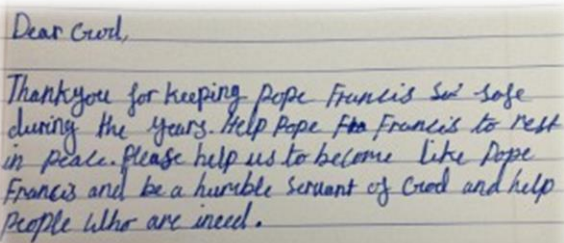 Dear God,
Thankyou for keeping Pope Francis so safe
during the years. Help Pope Fra Francis to rest
in peace. Please help us to become like Pope
Francis and be a humble servant of God and help
people who are ineed.